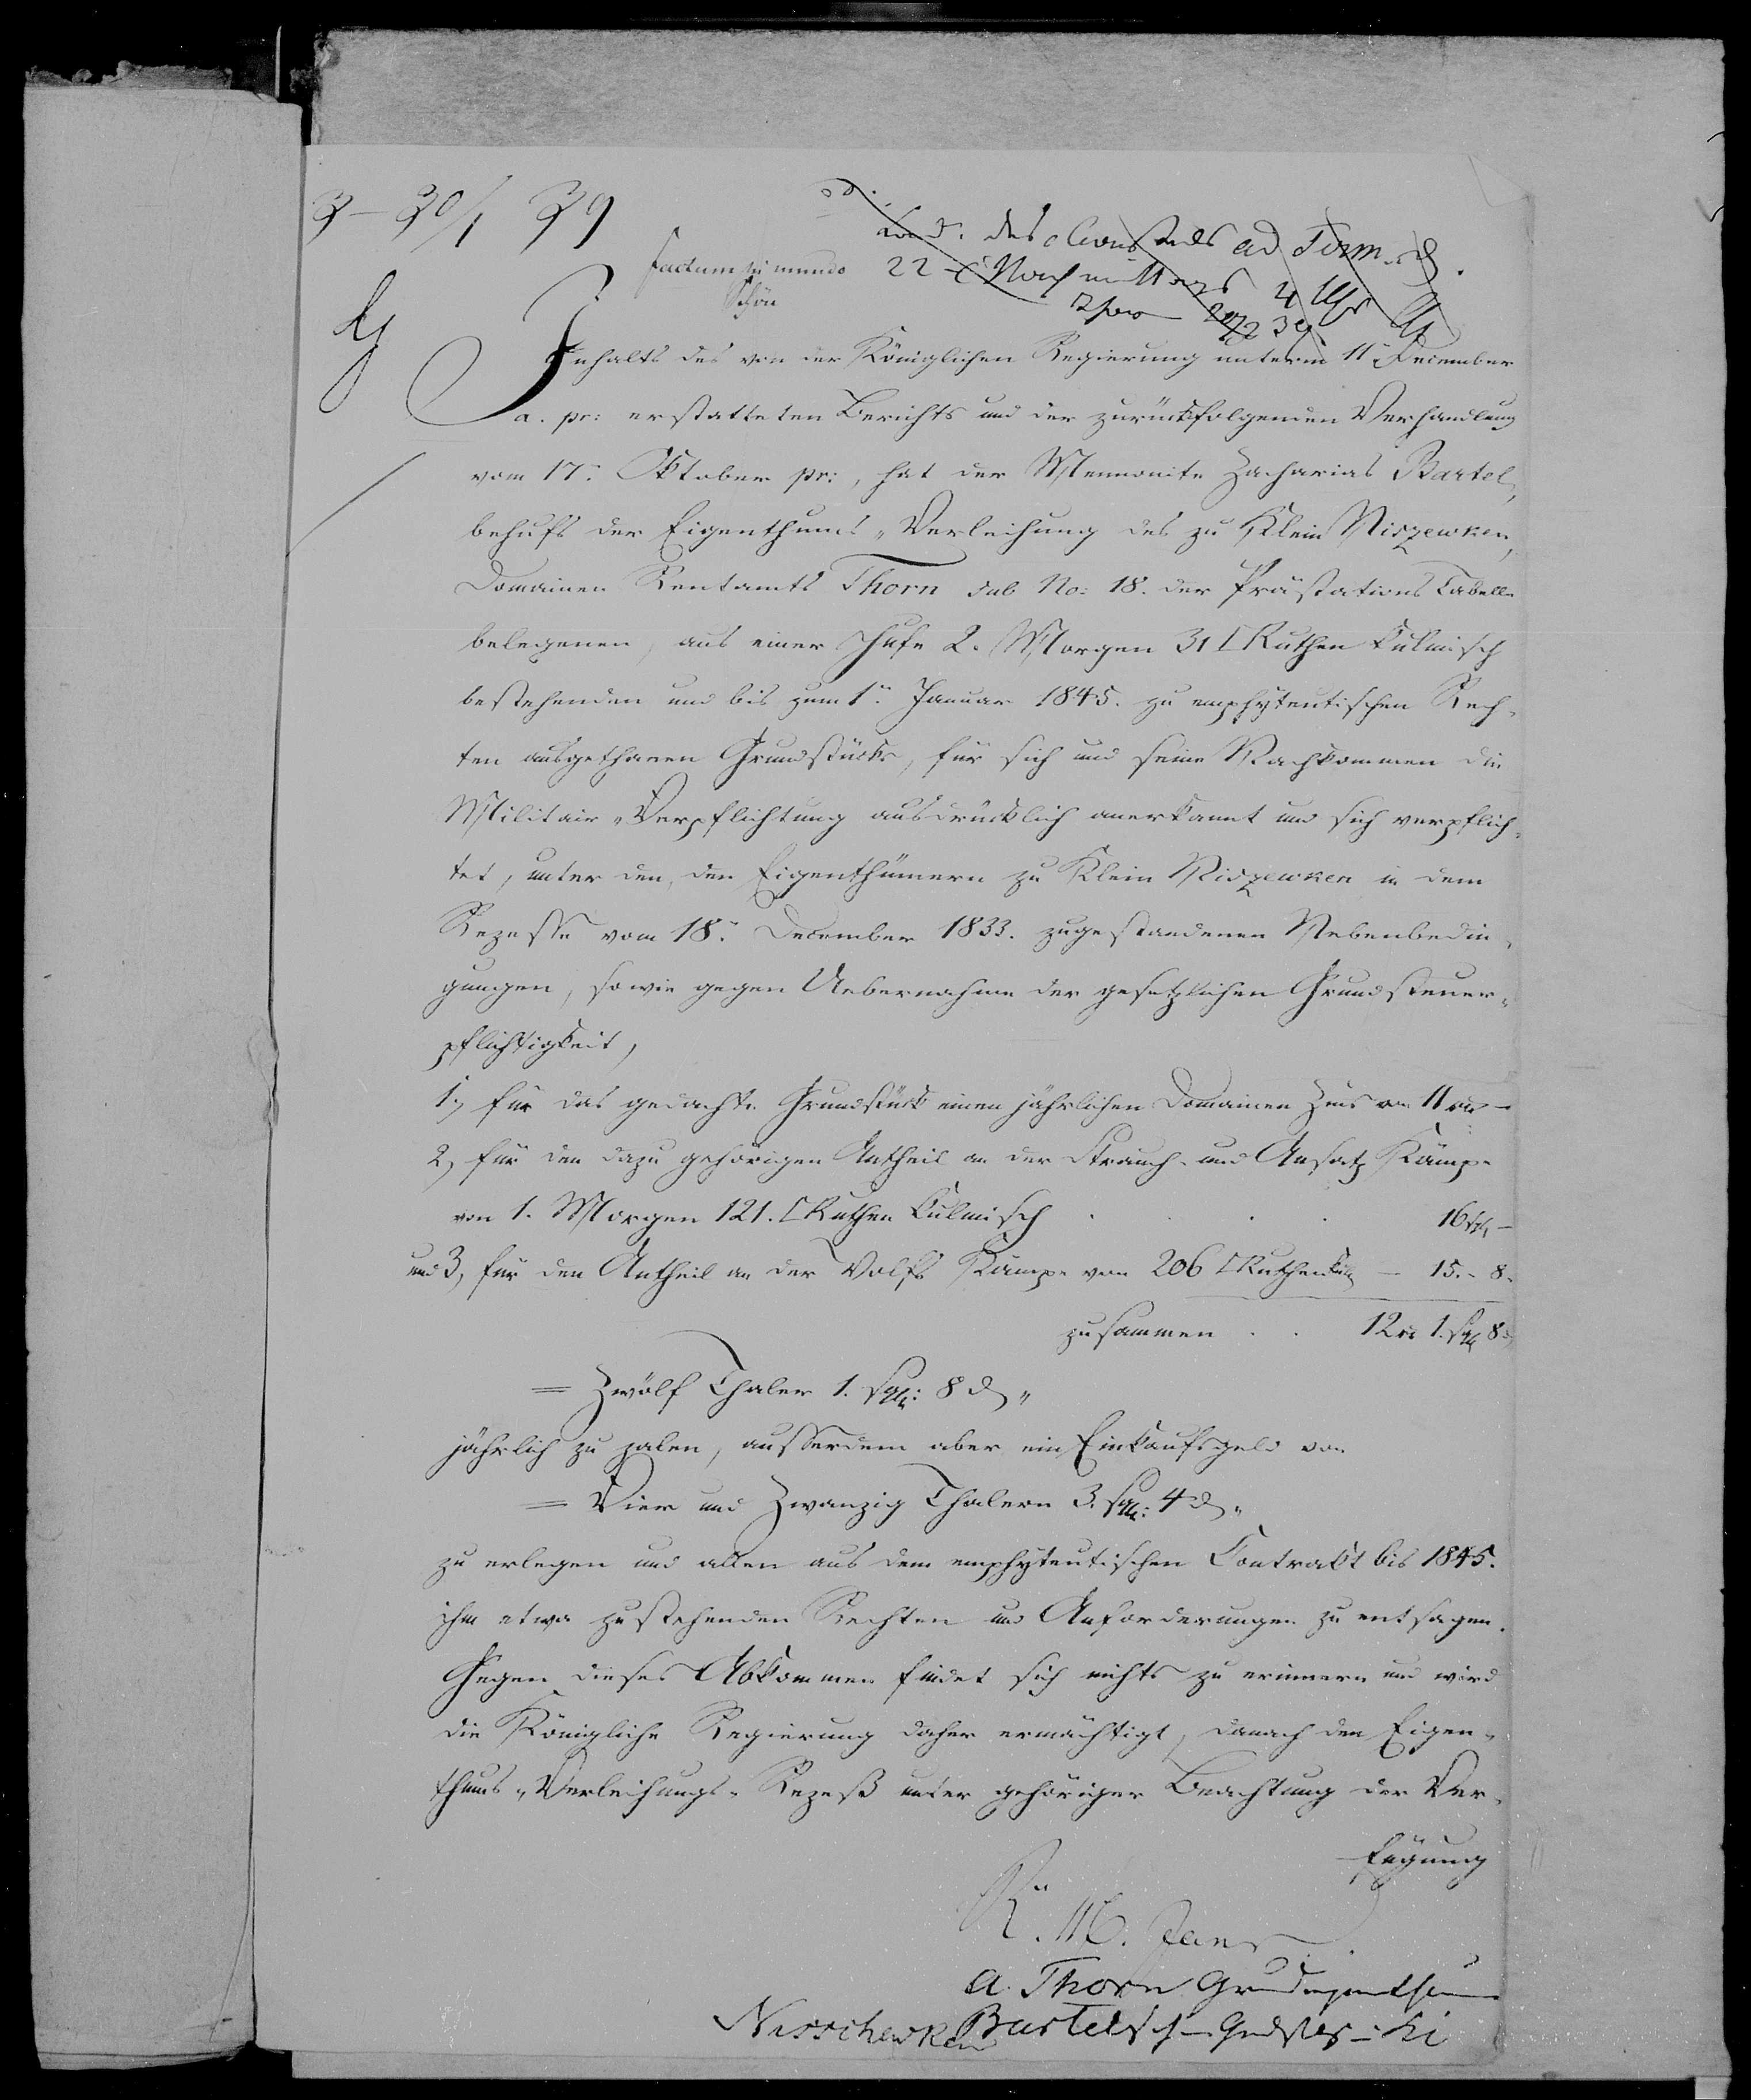 3 – 30/1 39
des ad Term. d.
factum in mundo 22 t Nachmittags 4 Uhr
Schön
Inhalts des von der Königlichen Regierung unterm 11ten December
a. pr: erstatteten Berichts und der zurückfolgenden Verhandlung
vom 17ten Oktober pr:, hat der Mennonite Zacharias Bartel,
behufs der Eigenthums-Verleihung des zu Klein Niszewken,
Domainen Rentamts Thorn sub No: 18. der Prästations Tabelle
belegenen, aus einer Hufe 2. Morgen 31 □Ruthen kulmisch
bestehenden und bis zum 1ten Januar 1845. zu emphyteutischen Rech-
ten ausgethanen Grundstücks, für sich und seine Nachkommen die
Militair-Verpflichtung ausdrücklich anerkannt und sich verpflich-
tet, unter den, den Eigenthümern zu Klein Niszewken in dem
Rezesse vom 18ten December 1833. zugestandenen Nebenbedin-
gungen, sowie gegen Uebernahme der gesetzlichen Grundsteuer-
pflichtigkeit,
1, für das gedachte Grundstück einen jährlichen Domainen Zins von 11 rtl –
2, für den dazu gehörigen Antheil an der Strauch- und Ansatz Kämpe
von 1. Morgen 121. □Ruthen kulmisch . . . 16 sgr –
und 3, für den Antheil an der Wolfs Kämpe von 206 □Ruthen kulm – 15. - 8.
zusammen . . 12 rtl 1. sgr 8 d
= Zwölf Thaler 1. sgr: 8 d „
jährlich zu zalen, ausserdem aber ein Einkaufsgeld von
= Vier und Zwanzig Thalern 3. sgr: 4 d „
zu erlegen und allen aus dem emphyteutischen Contrakt bis 1845.
ihm etwa zustehenden Rechten und Anforderungen zu entsagen.
Gegen dieses Abkommen findet sich nichts zu erinnern und wird
die Königliche Regierung daher ermächtigt, danach den Eigen-
thums-Verleihungs-Rezeß unter gehöriger Beachtung der Ver-
fügung
A. Thorn
Nisschewken Bartel